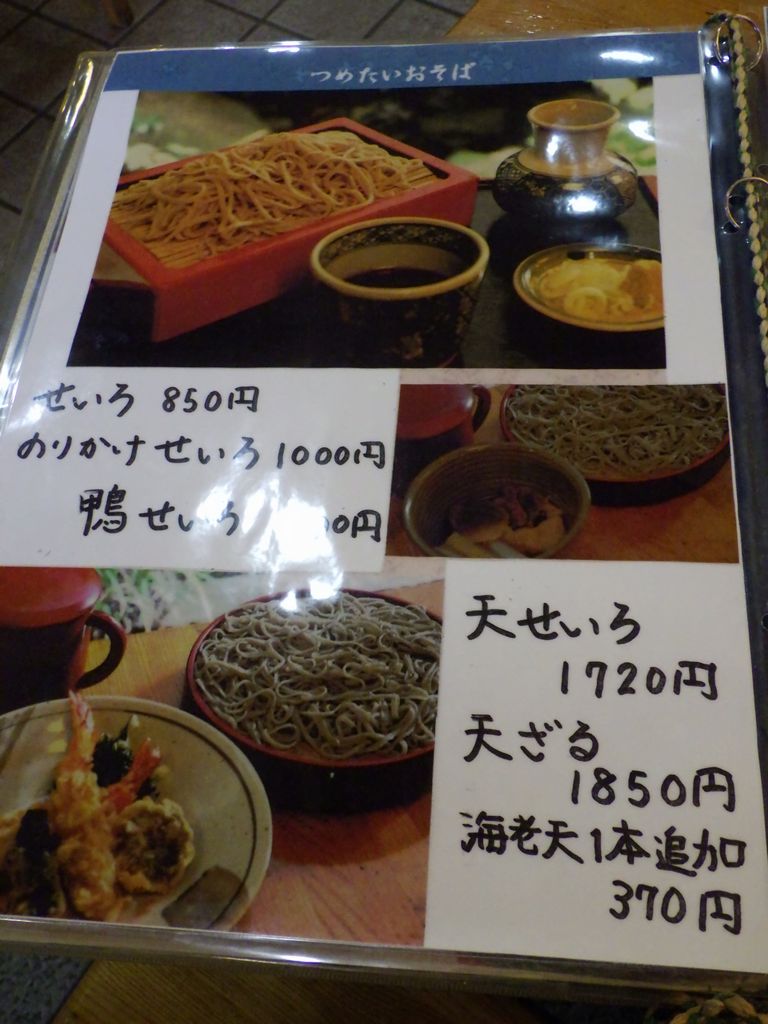 つめたいおそば
せいろ 850円
のりかけせいろ 1000円
鴨せいろ 円
天せいろ
1720円
天ざる
1850円
海老天1本追加
370円